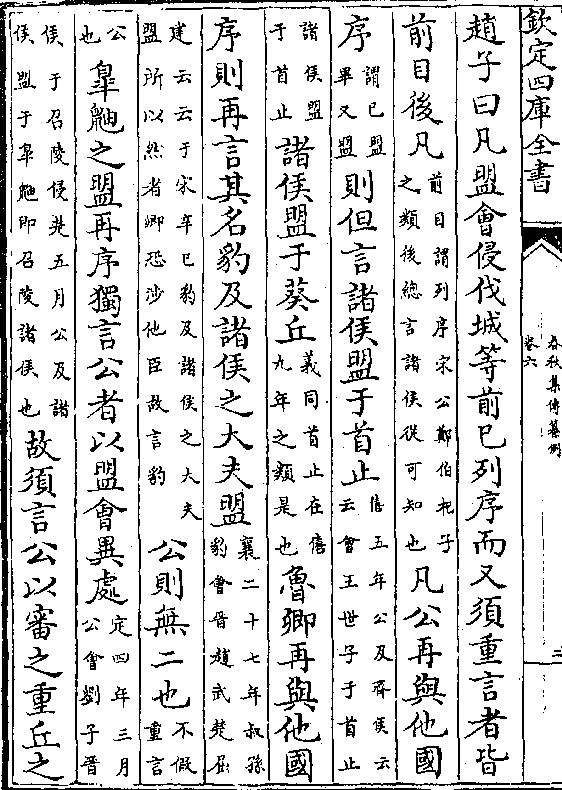 欽定四庫全書
春秋集傳纂例
卷六
三
趙子曰凡盟會侵伐城等前已列序而又須重言者皆
前目後凡前目謂列序宋公鄭伯杞子之類後總言諸侯從可知也凡公再與他國
序謂已盟畢又盟則但言諸侯盟于首止僖五年公及齊侯云云會王世子于首止
諸侯盟于首止諸侯盟于葵丘義同首止在僖九年之類是也魯卿再與他國
序則再言其名豹及諸侯之大夫盟襄二十七年叔孫豹會晉趙武楚屈
建云云于宋辛巳豹及諸侯之大夫盟所以然者卿恐涉他臣故言豹公則無二也不假重言
公也臯鼬之盟再序獨言公者以盟會異處定四年三月公會劉子晉
侯于召陵侵楚五月公及諸侯盟于臯鼬即召陵諸侯也故須言公以審之重丘之